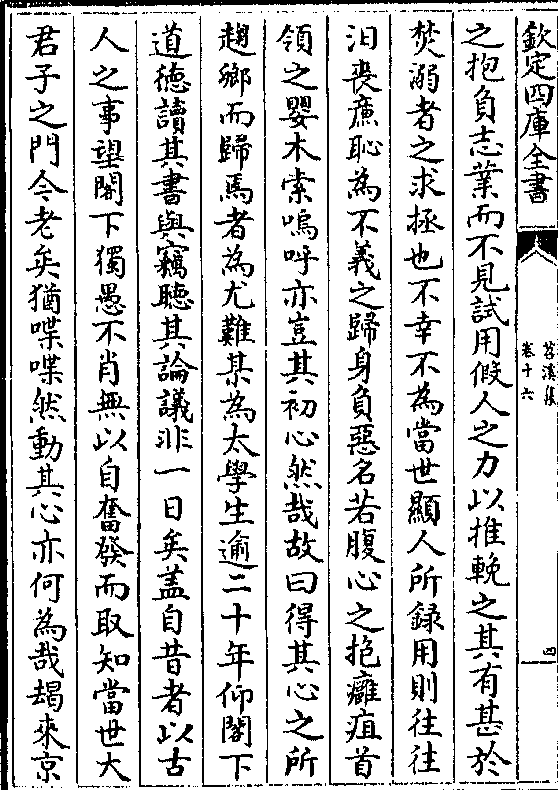 欽定四庫全書
苕溪集
卷十六
四
之抱負志業而不見試用假人之力以推輓之其有甚於
焚溺者之求拯也不幸不為當世顯人所録用則往往
汩喪亷恥為不義之歸身負惡名若腹心之抱癰疽首
領之嬰木索嗚呼亦豈其初心然哉故曰得其心之所
趨鄉而歸焉者為尤難某為太學生逾二十年仰閣下
道德讀其書與竊聽其論議非一日矣蓋自昔者以古
人之事望閣下獨愚不肖無以自奮發而取知當世大
君子之門今老矣猶喋喋然動其心亦何為哉朅來京